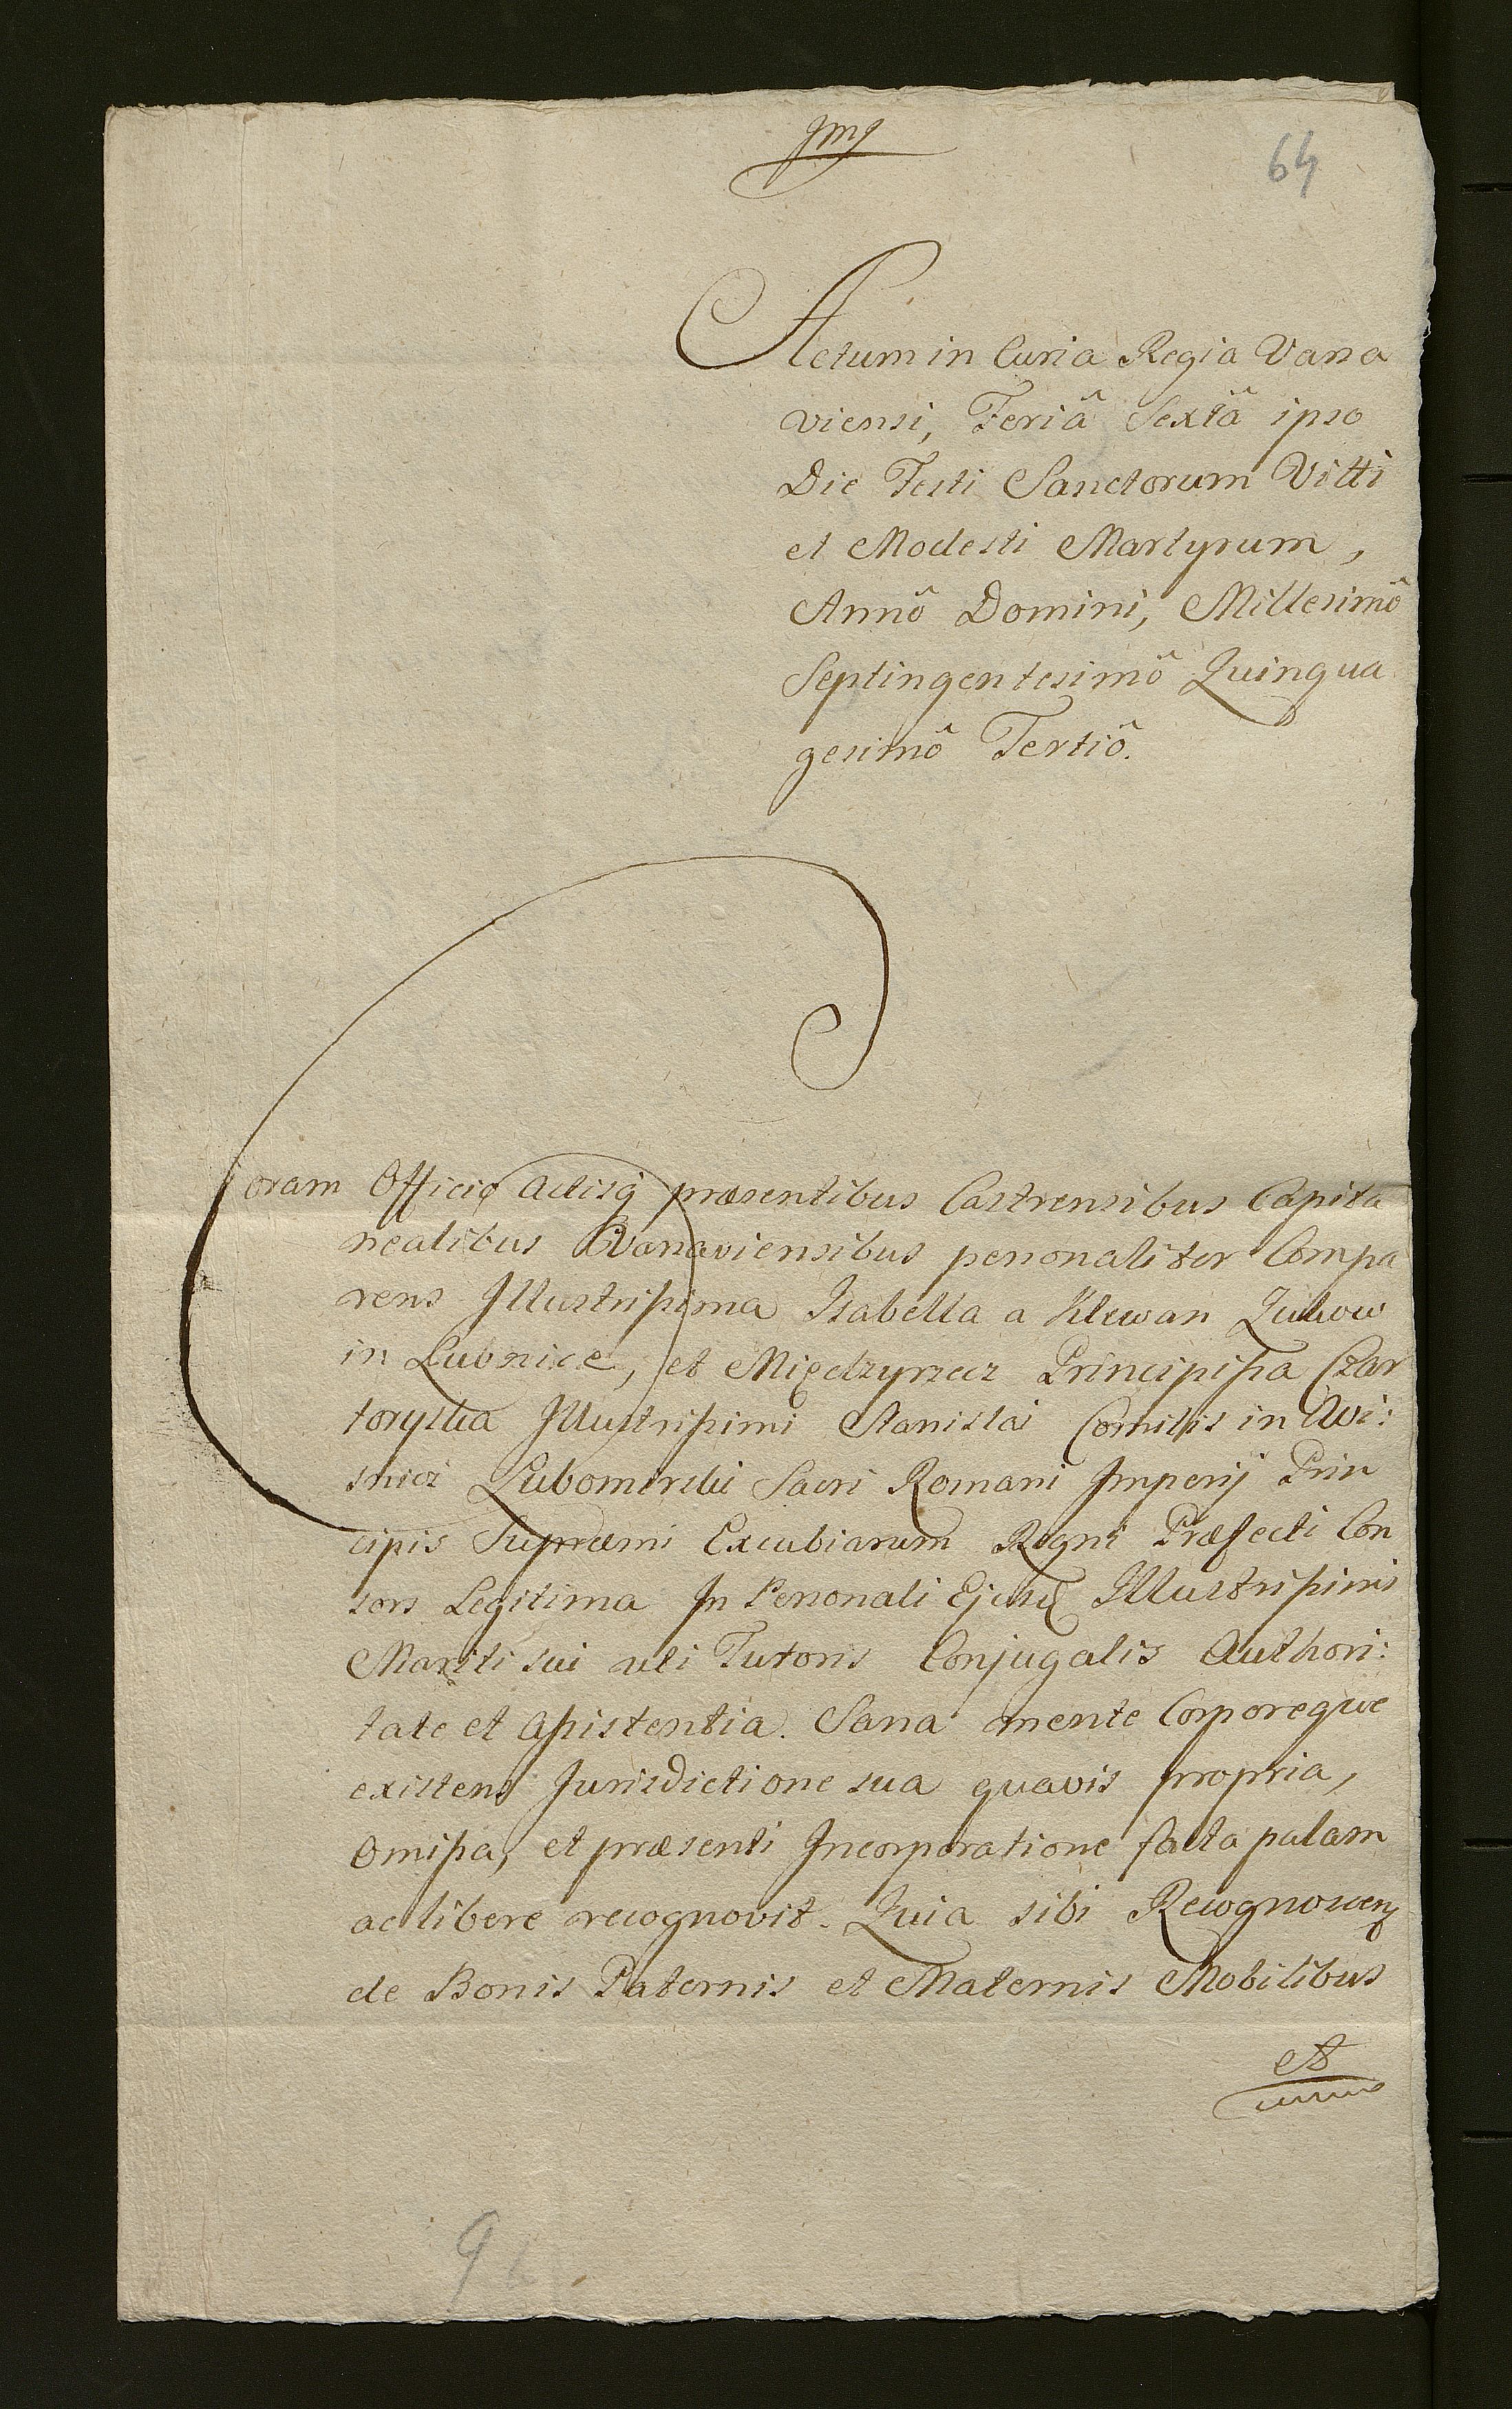 Jmj
64
Actum in Curia Regia Varsa
viensi, Feriâ Sextâ ipso
Die Festi Sanctorum Vitti
et Modesti Martyrum,
Annô Domini, Millesimô
Septingentesimô Quinqua
gesimô Tertiô.
Coram Officio Actisq præsentibus Castrensibus Capita
nealibus Varsaviensibus personaliter Compa
rens Illustrissima Isabella a Klewan Zukow
in Lubnice, et Międzyrzecz Principissa Czar
toryska Illustrissimi Stanislai Comitis in Wi:
snicz Lubomirski Sacri Romani Imperij Prin
cipis Supræmi Excubiarum Regni Præfecti Con
sors Legitima In Personali Ejusd Illustrissimi
Mariti sui uti Tutoris Conjugalis Authori:
tate et Assistentia. Sana mente Corporeque
existens Jurisdictione sua quavis propria,
Omissa, et præsenti Incorporatione facta palam
ac libere recognovit. Quia sibi Recognoscen
de Bonis Paternis et Maternis Mobilibus
et
9